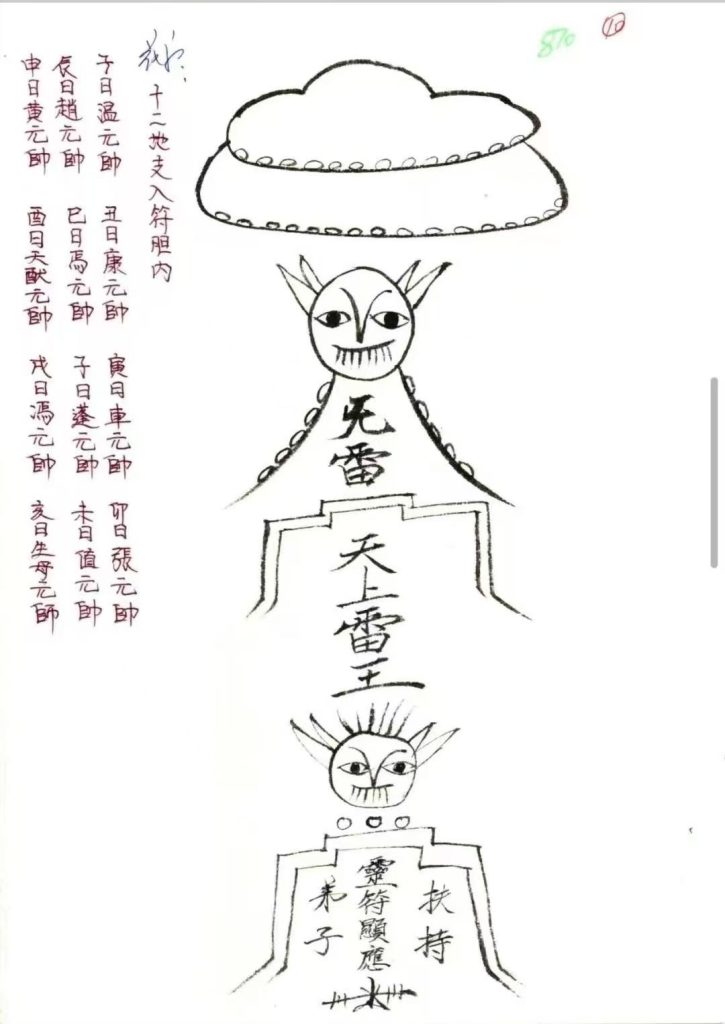 870
10
十二地支入符胆内
子日温元帥
丑日康元帥
寅日車元帥
卯日張元帥
辰日趙元帥
巳日馬元帥
子日蓬元帥
未日值元帥
申日黄元帥
酉日天猷元帥
戌日馮元帥
亥日生母元帥
雷
天上雷王
弟子
靈符顯應
扶持